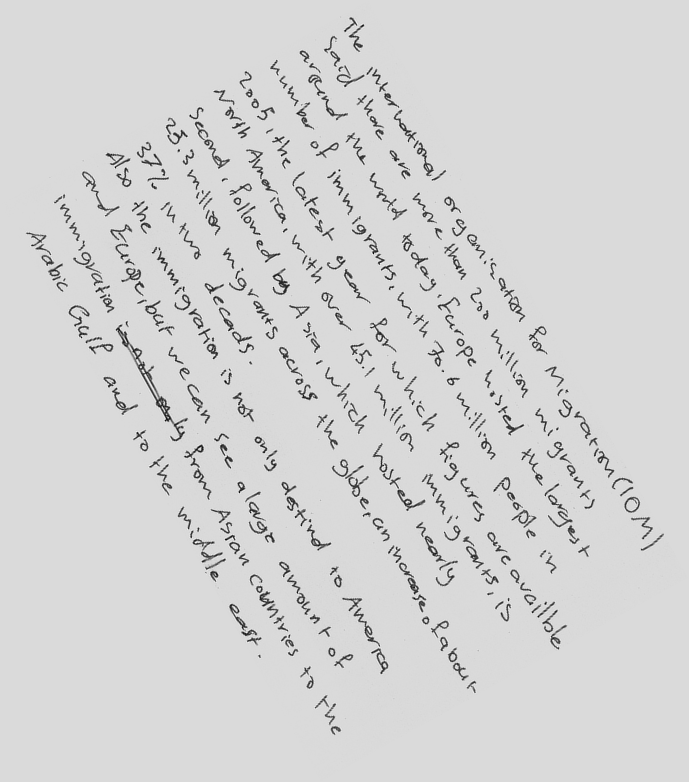 The international organization for Migration (IOM)
said there are more than 200 million migrants
around the world today. Europe hosted the largest
number of immigrants, with 70.6 million people in
2005, the latest year for which figures are availlble
North America, with over 45.1 million immigrants, is
second, followed by Asia, which hosted nearly
25.3 million migrants across the globe, an increase of about
37% in two decads.
Also the immigration is not only destind to America
and Europe, but we can see a large amount of
immigration is not only from Asian countries to the
Arabic Gulf and to the middle east.